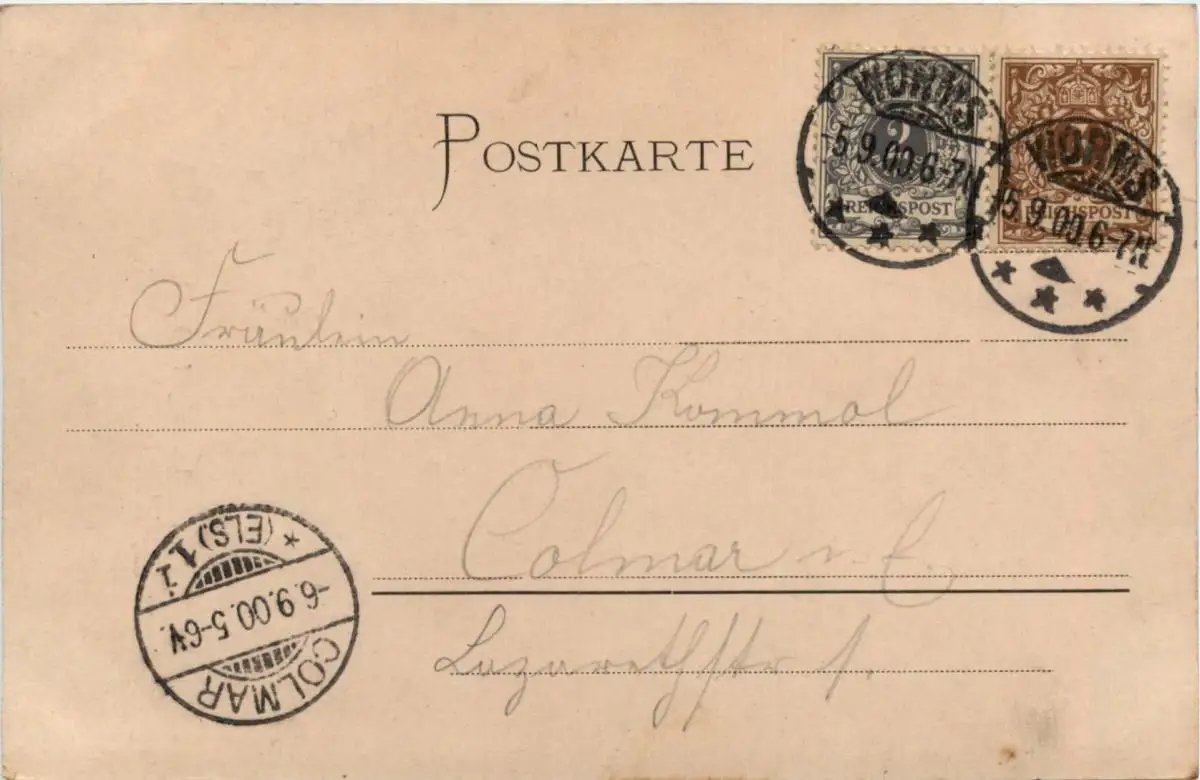 POSTKARTE
WORMS
5.9.00.6-7N.
2
REICHSPOST
WORMS
5.9.00.6-7N.
REICHSPOST
Fräulein
Anna Kommol
Colmar i. E
Lazarethstr 1.
COLMAR
-6.9.00.5-6V.
* (ELS) 1 i.